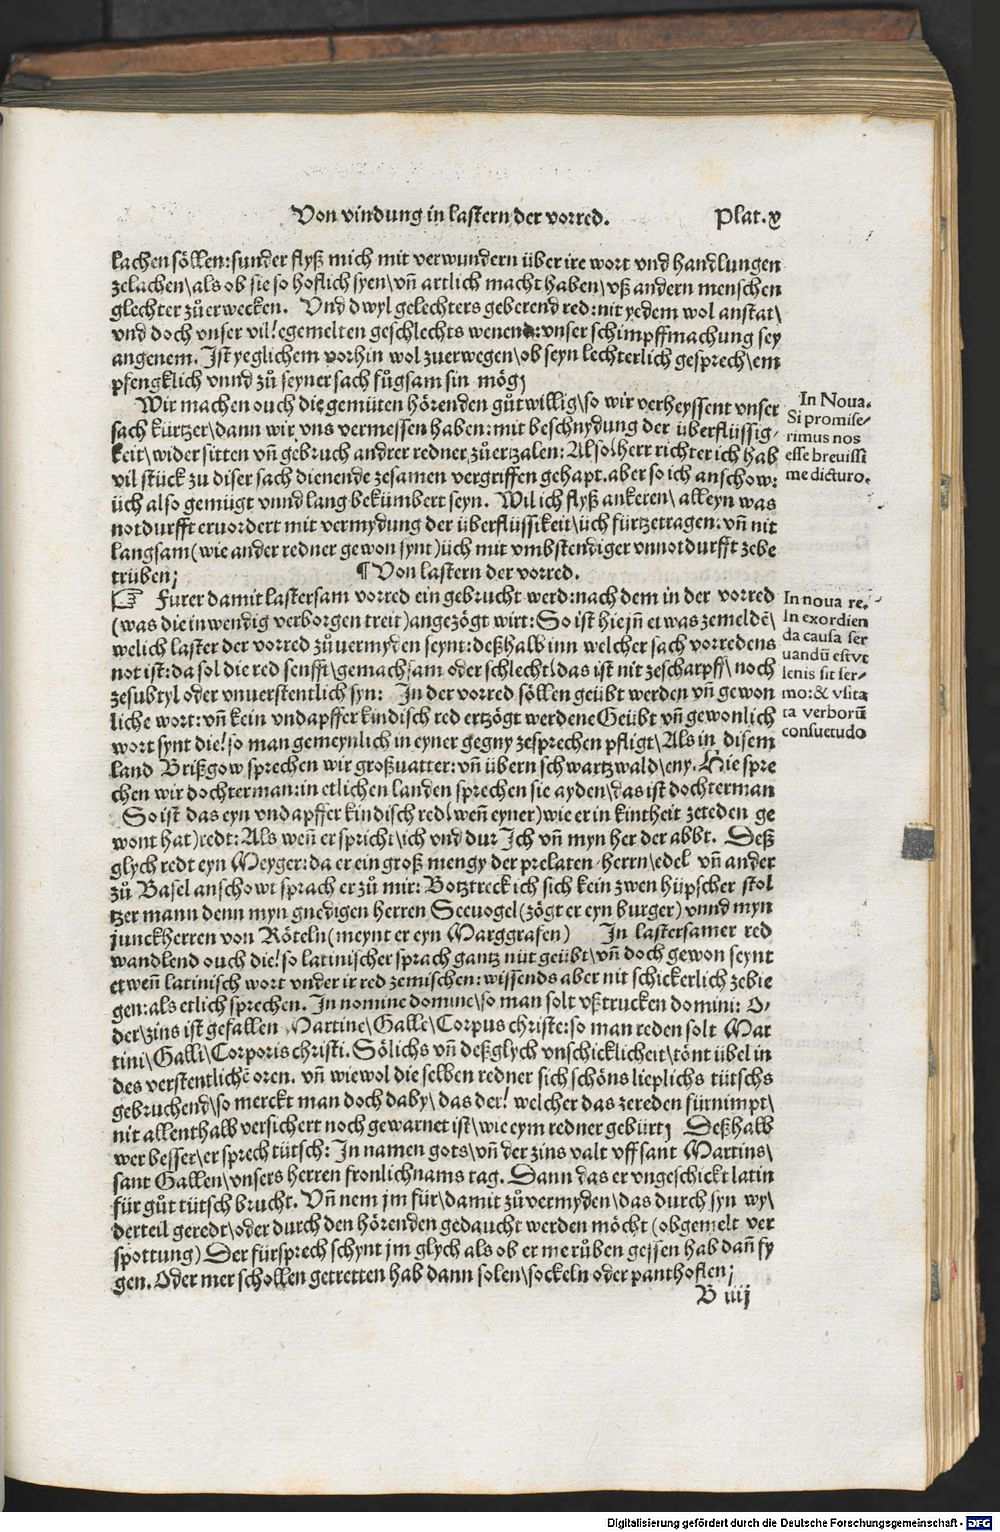 Von vindung in lastern der vorred.
Plat.x
lachen söllen:sunder flyß mich mit verwundern über ire wort vnd handlungen
zelachen\als ob sie so hoflich syen\vñ artlich macht haben\vß andern menschen
glechter zůerwecken. Vnd dwyl gelechters geberend red:nit yedem wol anstat\
vnd doch vnser vil/egemelten geschlechts wenend:vnser schimpffmachung sey
angenem. Ist yeglichem vorhin wol zuerwegen\ob seyn lechterlich gesprech\em
pfengklich vnnd zů seyner sach fůgsam sin mög;
Wir machen ouch die gemüten hörenden gůtwillig\so wir verheyssent vnser
sach kürtzer\dann wir vns vermessen haben:mit beschnydung der überflüssig-
keit\wider sitten vñ gebruch andrer redner zůertzalen:Also/herr richter ich hab
vil stück zu diser sach dienende zesamen vergriffen gehapt.aber so ich anschow:
üch also gemügt vnnd lang bekümbert seyn. Wil ich flyß ankeren\alleyn was
notdurfft eruordert mit vermydung der überflüssikeit\üch fürtzetragen:vñ nit
langsam(wie ander redner gewon synt)üch mit vmbstendiger vnnotdurfft zebe
trüben;
¶ Von lastern der vorred.
☞ Furer damit lastersam vorred ein gebrucht werd:nach dem in der vorred
(was die inwendig verborgen treit)angezögt wirt:So ist hiejñ etwas zemeldē\
welich laster der vorred zůuermyden seynt:deßhalb inn welcher sach vorredens
not ist:da sol die red senfft\gemachsam oder schlecht/das ist nit zescharpff\noch
zesubtyl oder vnuerstentlich syn: In der vorred söllen geübt werden vñ gewon
liche wort:vñ kein vndapffer kindisch red ertzögt werdene Geübt vñ gewonlich
wort synt die/so man gemeynlich in eyner gegny zesprechen pfligt\Als in disem
land Brißgow sprechen wir großuatter:vñ übern schwartzwald\eny. Hie spre
chen wir dochterman:in etlichen landen sprechen sie ayden\das ist dochterman
So ist das eyn vndapffer kindisch red(weñ eyner)wie er in kintheit zereden ge
wont hat)redt:Als weñ er spricht\ich vnd du: Ich vñ myn her der abbt. Deß
glych redt eyn Meyger:da er ein groß mengy der prelaten herrn\edel vñ ander
zů Basel anschowt sprach er zů mir:Botztreck ich sich kein zwen hüpscher stol
tzer mann denn myn gnedigen herren Seeuogel(zögt er eyn burger)vnnd myn
junckherren von Röteln(meynt er eyn Marggrafen) In lastersamer red
wandlend ouch die/so latinischer sprach gantz nüt geübt\vñ doch gewon seynt
etweñ latinisch wort vnder ir red zemischen:wissends aber nit schickerlich zebie
gen:als etlich sprechen. In nomine domine\so man solt vßtrucken domini: O-
der\zins ist gefallen Martine\Galle\Corpus christe:so man reden solt Mar
tini\Galli\Corporis christi. Sölichs vñ deßglych vnschicklicheit\tönt übel in
des verstentlichē oren. vñ wiewol die selben redner sich schöns lieplichs tütschs
gebruchend\so merckt man doch daby\das der/welcher das zereden fürnimpt\
nit allenthalb versichert noch gewarnet ist\wie eym redner gebürt; Deßhalb
wer besser\er sprech tütsch: In namen gots\vñ der zins valt vff sant Martins\
sant Gallen\vnsers herren fronlichnams tag. Dann das er vngeschickt latin
für gůt tütsch brucht. Vñ nem jm für\damit zůvermyden\das durch syn wy\
derteil geredt\oder durch den hörenden gedaucht werden möcht(obgemelt ver
spottung)Der fürsprech schynt jm glych als ob er me růben gejsen hab dañ fy
gen. Oder mer schollen getretten hab dann solen\sockeln oder panthoflen;
B iiij
In Noua.
Si promise-
rimus nos
esse breuissi
me dicturo.
In noua re.
In exordien
da causa ser
uandū est vt
lenis sit ser-
mo:& vsita
ta verborū
consuetudo
Digitalisierung gefördert durch die Deutsche Forschungsgemeinschaft - DFG